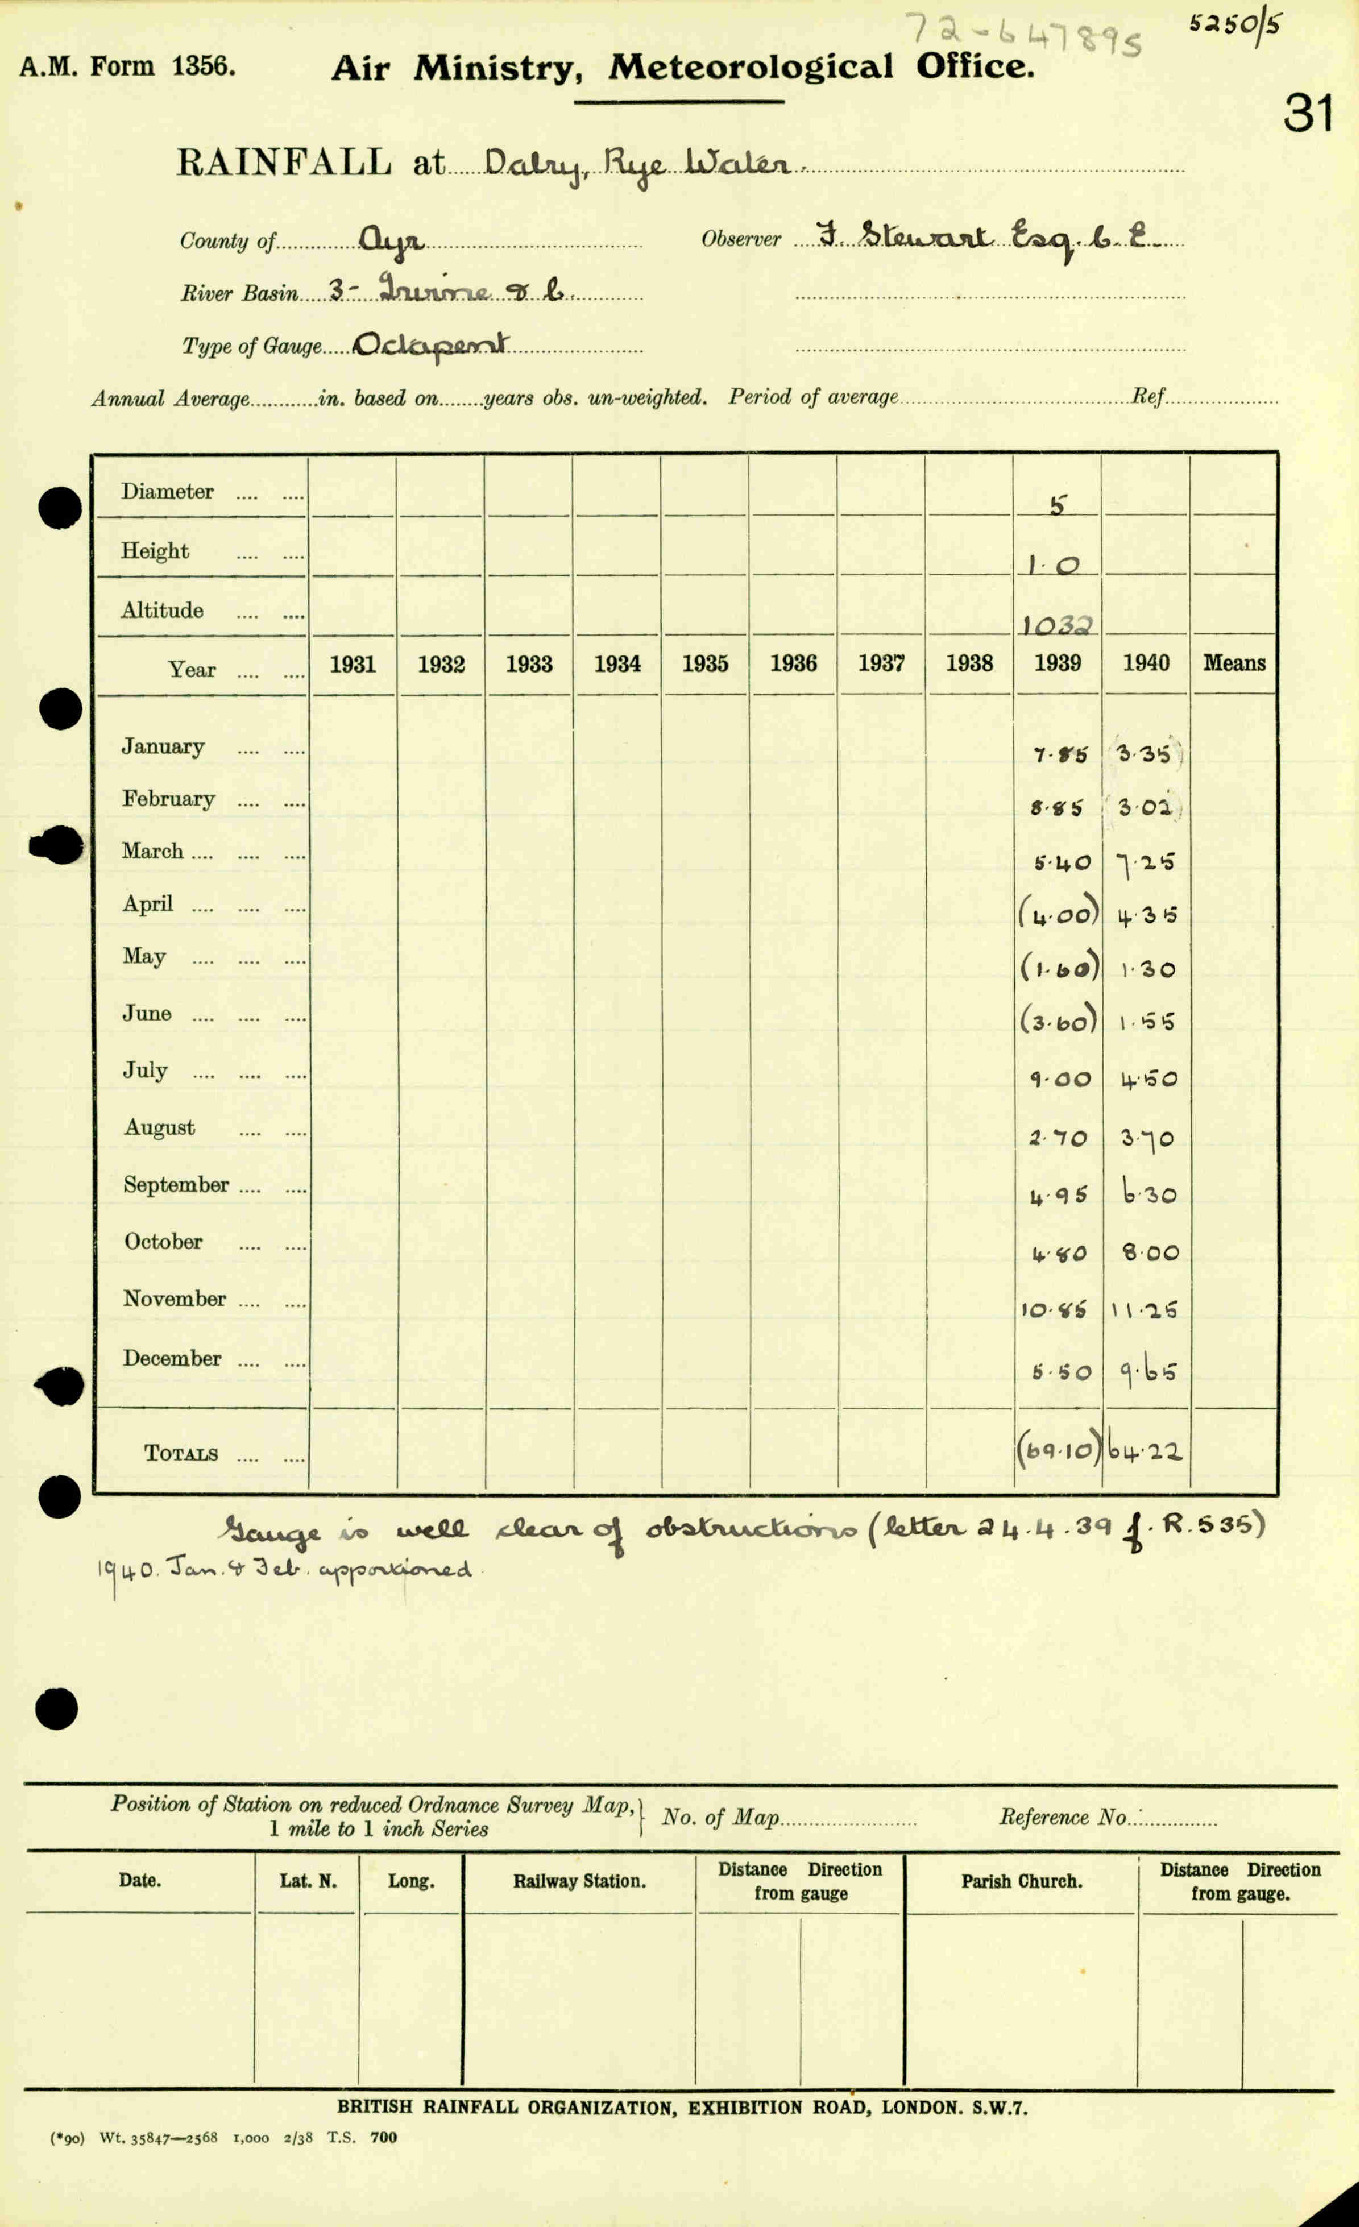 72-647895 5250/5
A.M. Form 1356. Air Ministry, Meteorological Office.
31
RAINFALL at Dalry, Rye Water.
County of Ayr Observer F. Stewart Esq. C. E.
River Basin 3- Irvine & C.
Type of Gauge Octapent
Annual Average in. based on years obs. un-weighted. Period of average Ref.
Diameter 5
Height 1.0
Altitude 1032
Year 1931 1932 1933 1934 1935 1936 1937 1938 1939 1940 Means
January 7.85 (3.35)
February 8.85 (3.02)
March 5.40 7.25
April (4.00) 4.35
May (1.60) 1.30
June (3.60) 1.55
July 9.00 4.50
August 2.70 3.70
September 4.95 6.30
October 4.80 8.00
November 10.85 11.25
December 5.50 9.65
TOTALS (69.10) 64.22
Gauge is well clear of obstructions (letter 24.4.39 f. R.535)
1940. Jan. & Feb. apportioned
Position of Station on reduced Ordnance Survey Map, } No. of Map Reference No.
1 mile to 1 inch Series
Date. Lat. N. Long. Railway Station. Distance Direction from gauge Parish Church. Distance Direction from gauge.
BRITISH RAINFALL ORGANIZATION, EXHIBITION ROAD, LONDON. S.W.7.
(*90) Wt. 35847—2568 1,000 2/38 T.S. 700